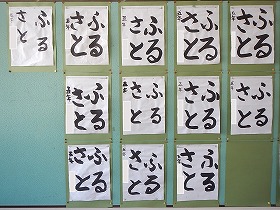 ふる
さと
ふる
さと
ふる
さと
ふる
さと
ふる
さと
ふる
さと
ふる
さと
ふる
さと
ふる
さと
ふる
さと
ふる
さと
ふる
さと